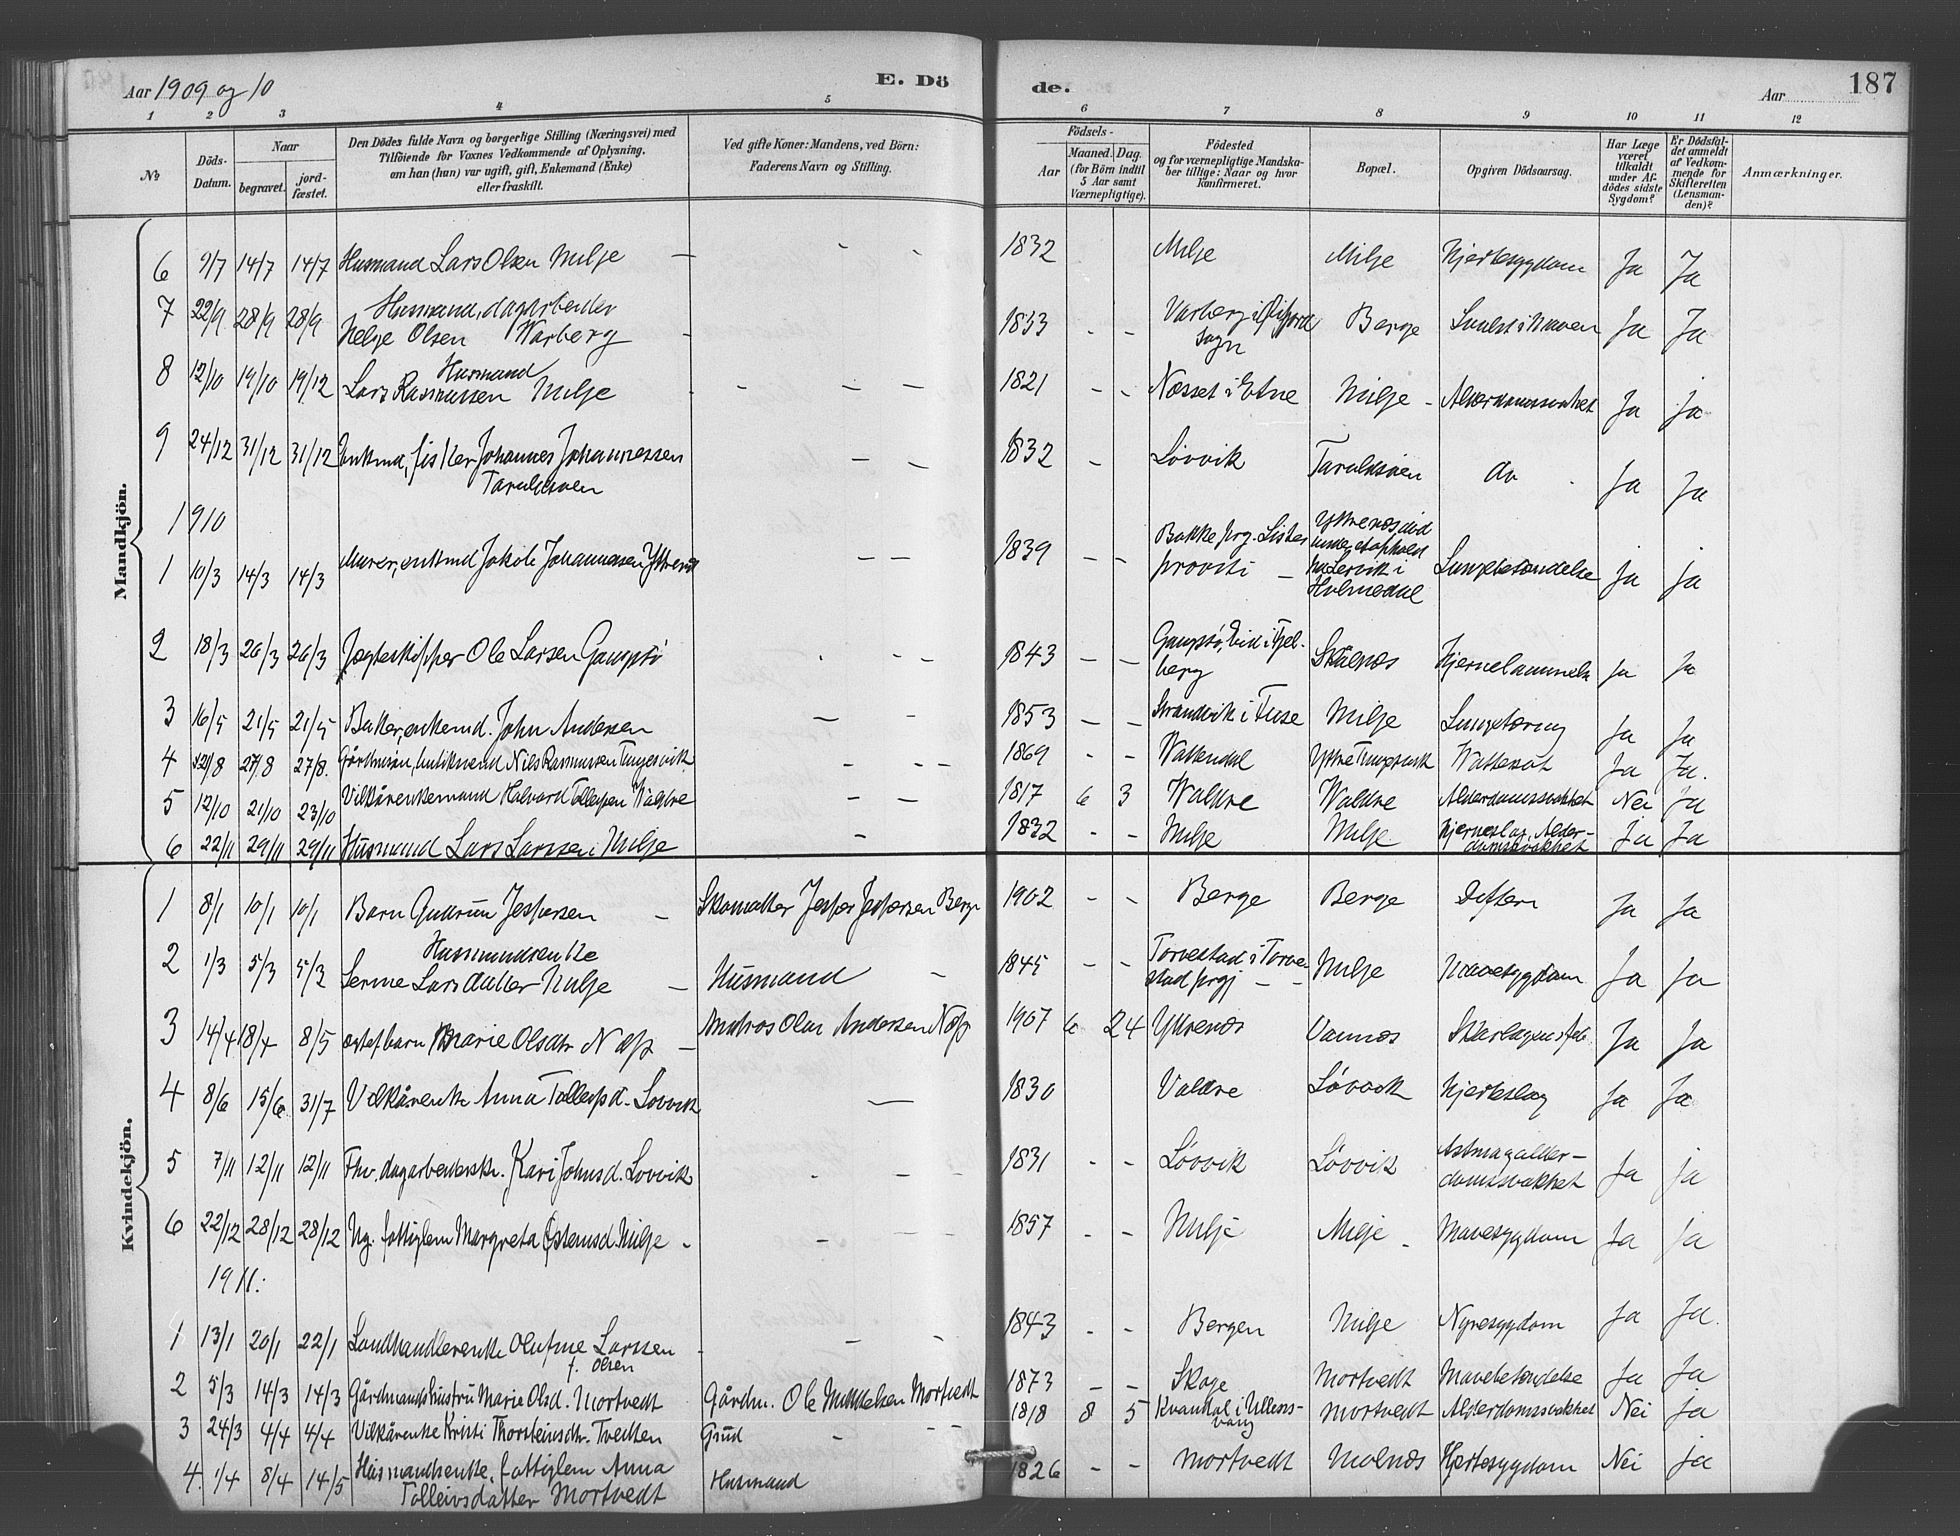 Aar 1909 og 10
E. Dö
de.
Aar
187
1 2 3 4 5 6 7 8 9 10 11 12
No
Döds-Datum.
Naar
begravet.
jord-fæstet.
Den Dödes fulde Navn og borgerlige Stilling (Næringsvei) med
Tilföiende for Voxnes Vedkommende af Oplysning,
om han (hun) var ugift, gift, Enkemand (Enke)
eller fraskilt.
Ved gifte Koner: Mandens, ved Börn:
Faderens Navn og Stilling.
Födsels-
Aar
Maaned. Dag.
(for Börn indtil
5 Aar samt
Værnepligtige).
Födested
og for værnepligtige Mandska-
ber tillige: Naar og hvor
konfirmeret.
Bopæl.
Opgiven Dödsaarsag.
Har Læge
været
tilkaldt
under Af-
dödes sidste
Sygdom?
Er Dödsfal-
det anmeldt
af Vedkom-
mende for
Skifteretten
(Lensman-
den)?
Anmærkninger.
Mandkjön.
6 9/7 14/7 14/7 Husmand Lars Olsen Milje — 1832 Milje Milje Hjertesygdom Ja Ja
7 22/9 28/9 28/9 Husmand, dagarbeider
Helge Olsen Warberg - 1833 - - Varberg i sogn Berge Ja Ja
8 12/10 19/10 19/12 Husmand
Lars Rasmussen Milje - — — 1821 - - Næsset i Etne Milje - Alderdomssvakhet Ja ja
9 24/12 31/12 31/12 Enkmd, fisker Johannes Johannessen
Taraldsøen — — 1832 - Løvvik Taraldsøen do Ja Ja
1910
1 10/3 14/3 14/3 Murer, enkmd Jakob Johannessen Yttrenæs — — 1839 - - Bakke prg. Lister
provsti — Yttrenæs død
under et ophold
paa Lervik i
Holmedal Lungebetændelse Ja Ja
2 18/3 26/3 26/3 Jægteskipper Ole Larsen Gangstø - - 1843 — — Gangstø, Eid i Fjel-
berg Skaanæs Hjernelammelse Ja Ja
3 16/5 21/5 21/5 Baker, enkemd. John Andersen — - 1853 — — Strandvik i Fuse Milje Lungetæring Ja Ja
4 27/8 27/8. Gårdman, Nils Rasmussen Tungesvik - - - 1869 - - Wattendal Yttre Tungesvik Wattersot Ja Ja.
5 12/10 21/10 23/10 Vilkårenkemand Halvard Tollefsen Waldre — — 1817 6 3 Waldre Waldre Alderdomssvakhet Nei ja
6 22/11 29/11 29/11 Husmand Lars Larsen Milje — 1832 - - Milje Milje Hjerneslag, Alder-
domssvakhet Ja Ja
Kvindekjön.
1 8/1 10/1 10/1 Barn Gudrun Jespersen — Skomaker Jesper Jespersen Berge 1902 - - Berge Berge Difteri Ja Ja
2 1/3 5/3 5/3 Husmandsenke
Serine Larsdatter Milje — Husmand — 1845 - - Torvestad i Torve-
stad prgj — - Milje Mavesygdom Ja Ja
3 14/4 18/4 8/5 barn Marie Olsdtr Næs — Andersen Næs 1907 6 24 Yttrenæs Vannes Skarlagensfeb. Ja Ja
4 8/6 15/6 31/7 Vilkårenke Anna Tollefsd. Løvvik — 1830 Valdre Løvvik Hjerteslag Ja Ja
5 7/11 12/11 12/11 Fhv. dagarbeiderske. Kari Johnsd. Lovvik - - - 1831 - - Løvvik Løvvik Astma, alder-
domssvakhet Ja ja
6 22/12 28/12 28/12 Ug. fattiglem Margreta Østensd. Milje - - — — 1857 - - Milje Milje - Mavesygdom Ja ja
1911:
1 13/1 20/1 22/1 Landhandlerenke Olufine Larssen - — -
f. Olsen 1843 - - Bergen Milje Nyresygdom Ja Ja.
2 5/3 14/3 14/3 Gårdmandshustru Marie Olsd. Mortvedt Gårdm. Ole Mikkelsen Mortvedt 1873 — — Skage Mortvedt Mavebetændelse Ja Ja
3 24/3 4/4 4/4 Vilkårenke Kristi Thorsteinsdtr. Tvedten Grüd - - - 1818 8 5 Kvandal i Ullens-
vang Mortvedt Alderdomssvakhet Nei Ja
4. 1/4 8/4 14/5 Husmandsenke, fattiglem Anna
Tolleivsdatter Mortvedt Husmand 1826 - - Mortvedt Molnæs Hjertesygdom Nei ja